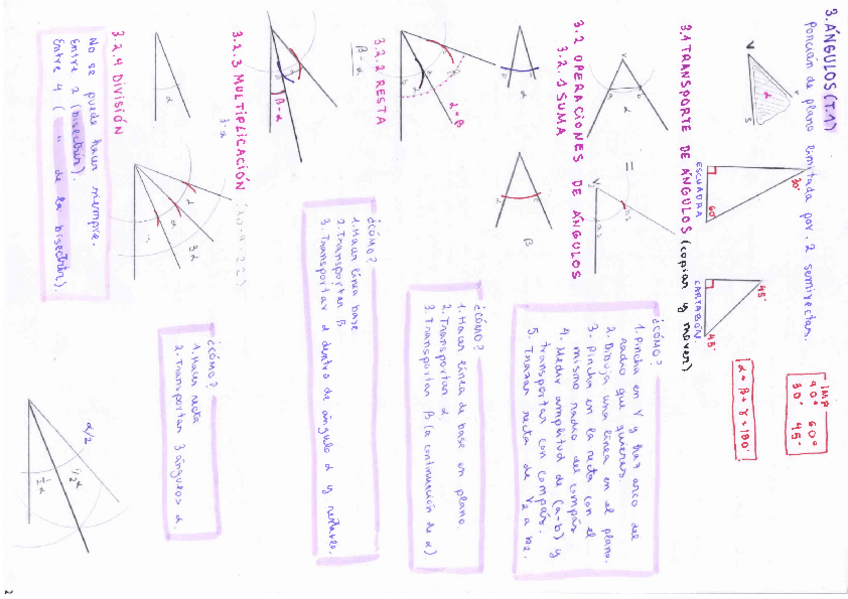 3. ÁNGULOS (T.1)
Porción de plano limitada por 2 semirectas.
V
r
α
S
30°
60°
ESCUADRA
45°
45°
CARTABÓN
IMP
90° 60°
30° 45°
α + β + γ = 180°
3.1 TRANSPORTE DE ÁNGULOS (copiar y mover)
V
a
b
α
=
V₂
a₂
¿CÓMO?
1. Pincha en V y haz arco del
radio que quieras.
2. Dibuja una línea en el plano.
3. Pincha en la recta con el
mismo radio del compás
4. Medir amplitud de (a-b) y
transportar con compás.
5. Trazar recta de V₂ a b₂.
3.2 OPERACIONES DE ÁNGULOS
3.2.1 SUMA
α
β
α + β
¿CÓMO?
1. Hacer línea de base en plano.
2. Transportar α.
3. Transportar β (a continuación de α)
3.2.2 RESTA
β - α
β - α
¿CÓMO?
1. Hacer línea base
2. Transportar β
3. Transportar α dentro de ángulo α y restarle.
3.2.3 MULTIPLICACIÓN
3·α
α
α
α
3α
¿CÓMO?
1. Hacer recta
2. Transportar 3 ángulos α.
3.2.4 DIVISIÓN
No se puede hacer siempre.
Entre 2 (bisectriz).
Entre 4 ( " de la bisectriz).
α/2
½α
½α
2